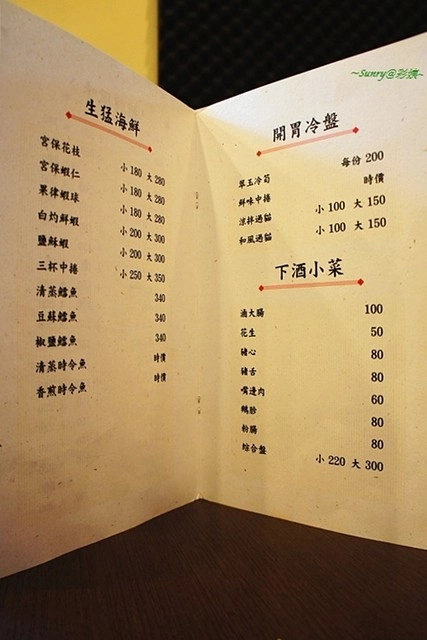 ~Sunry@彩繞~
生猛海鮮
宮保花枝 小 180 大 280
宮保蝦仁 小 180 大 280
果律蝦球 小 180 大 280
白灼鮮蝦 小 200 大 300
鹽酥蝦 小 200 大 300
三杯中捲 小 250 大 350
清蒸鱈魚 340
豆酥鱈魚 340
椒鹽鱈魚 340
清蒸時令魚 時價
香煎時令魚 時價
開胃冷盤
翠玉冷筍 每份 200
鮮味中捲 時價
涼拌過貓 小 100 大 150
和風過貓 小 100 大 150
下酒小菜
滷大腸 100
花生 50
豬心 80
豬舌 80
嘴邊肉 60
鵝胗 80
粉腸 80
綜合盤 小 220 大 300